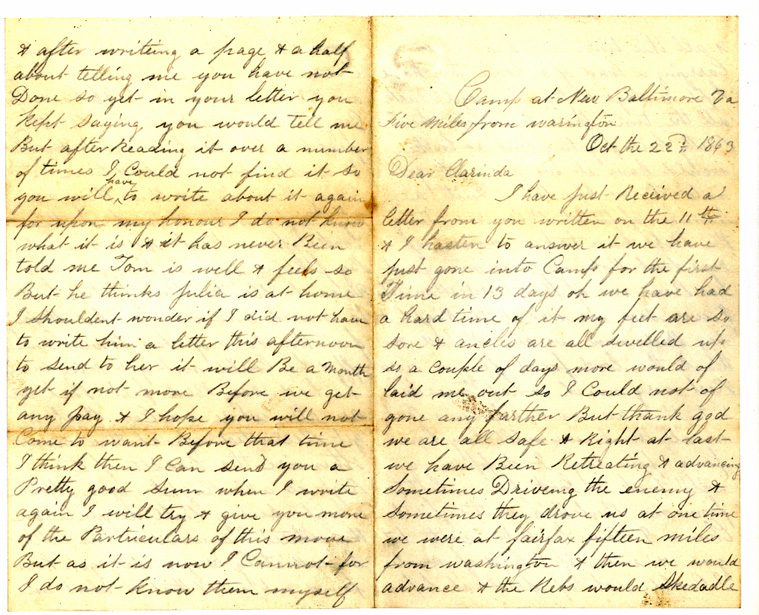 Camp at New Baltimore Va
Five miles from warington
Oct the 22nd 1863
Dear Clarinda
I have just Received a
letter from you written on the 11th
& I hasten to answer it we have
just gone into Camp for the first
Time in 13 days oh we have had
a hard time of it my feet are so
sore & ancles are all swelled up
so a couple of days more would of
laid me out so I Could not of
gone any farther But thank god
we are all safe & Right at last
we have Been Retreating & advancing
Sometimes Driveing the enemy &
Sometimes they drove us at one time
we were at fairfax fifteen miles
from washington & then we would
advance & the Rebs would Skedadle
& after writeing a page & a half
about telling me you have not
Done so yet in your letter you
Kept saying, you would tell me
But after Reading it over a number
of times I Could not find it so
you will have to write about it again
for upon my honour I do not know
what it is & it has never Been
told me Tom is well & feels so
But he thinks Julia is at home
I shouldent wonder if I did not have
to write him a letter this afternoon
to send to her it will Be a month
yet if not more Before we get
any pay & I hope you will not
Come to want Before that time
I think then I Can send you a
Pretty good Sum when I write
again I will try & give you more
of the Particulars of this move
But as it is now I Cannot for
I do not Know them myself